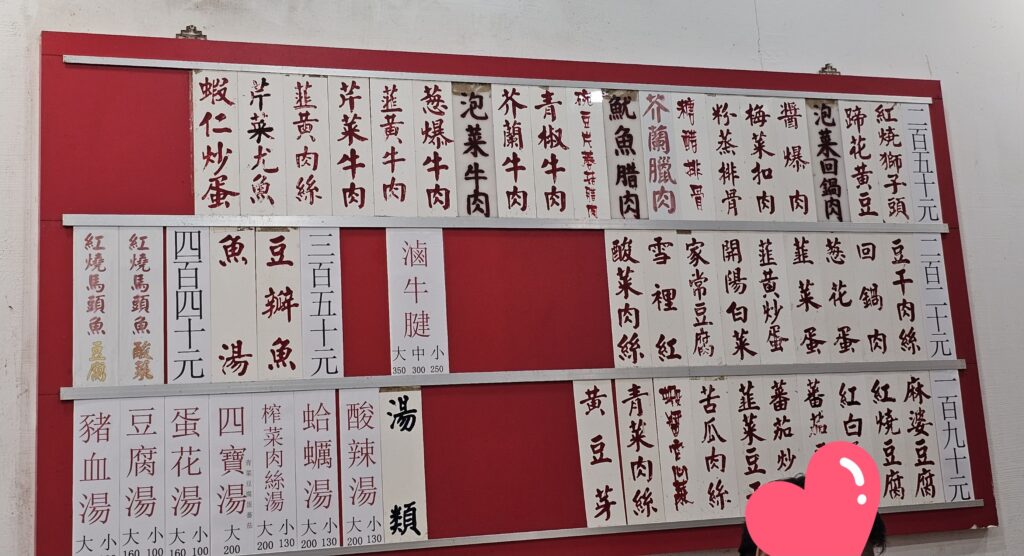 二百五十元
紅燒獅子頭
蹄花黃豆
泡菜回鍋肉
醬爆肉
梅菜扣肉
粉蒸排骨
糖醋排骨
芥蘭臘肉
魷魚腊肉
青椒牛肉
芥蘭牛肉
泡菜牛肉
葱爆牛肉
韮黃牛肉
芹菜牛肉
韮黃肉絲
芹菜尤魚
蝦仁炒蛋
二百二十元
豆干肉絲
回鍋肉
葱花蛋
韮菜蛋
韮黃炒蛋
開陽白菜
家常豆腐
雪裡紅
酸菜肉絲
滷牛腱
大 中 小
350 300 250
三百五十元
豆瓣魚
魚湯
四百四十元
紅燒馬頭魚 酸菜
紅燒馬頭魚 豆腐
一百九十元
麻婆豆腐
紅燒豆腐
紅白
蕃茄
蕃茄炒
韮菜豆
苦瓜肉絲
青菜肉絲
黃豆芽
湯類
酸辣湯
大 小
200 130
蛤蠣湯
大 小
200 130
榨菜肉絲湯
大 小
200 130
四寶湯
大
200
蛋花湯
大 小
160 100
豆腐湯
大 小
160 100
豬血湯
大 小